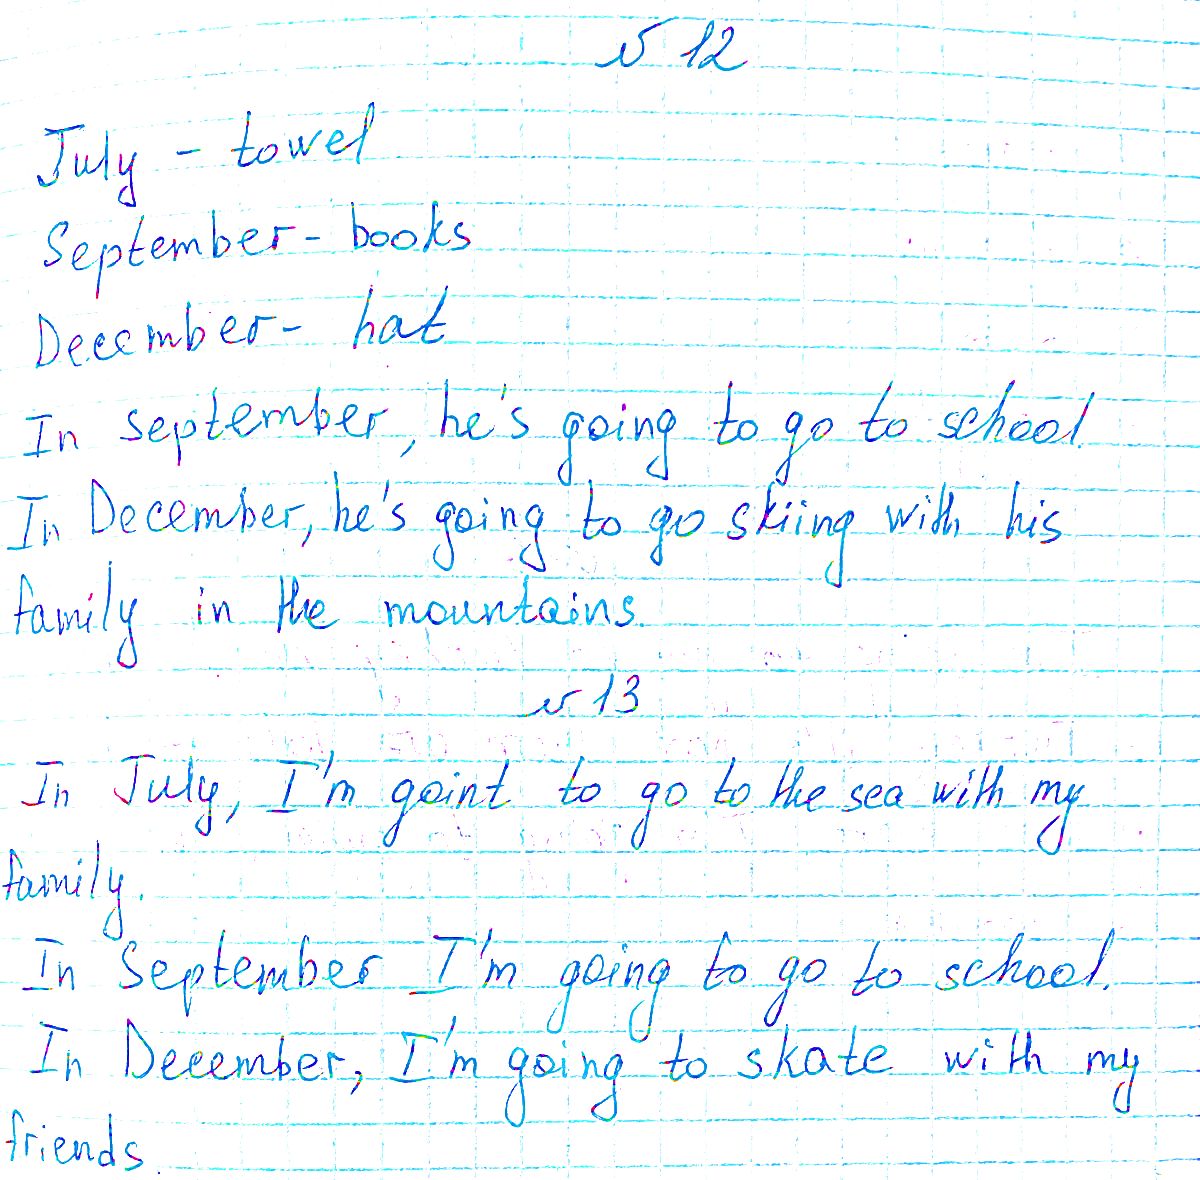 № 12
July - towel
September - books
December - hat
In september, he's going to go to school
In December, he's going to go skiing with his
family in the mountains.
№ 13
In July, I'm goint to go to the sea with my
family.
In September I'm going to go to school.
In December, I'm going to skate with my
friends.